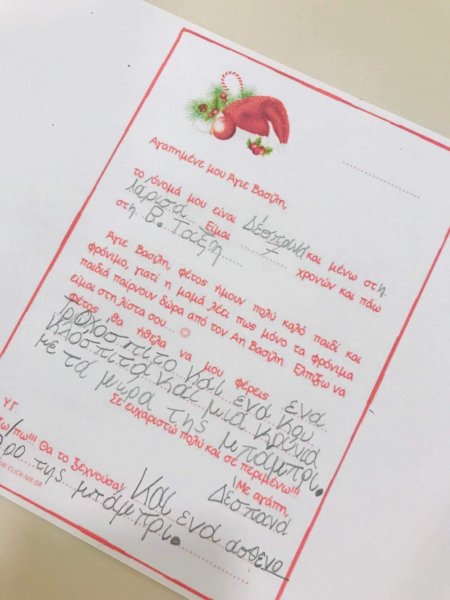 Αγαπημένε μου Άγιε Βασίλη,
το όνομά μου είναι Δέσποινα και μένω στη
Λάρισα. Είμαι 7 χρονών και πάω
στη Β. Τάξη
Άγιε Βασίλη, φέτος ήμουν πολύ καλό παιδί και
φρόνιμο, γιατί η μαμά λέει πως μόνο τα φρόνιμα
παιδιά παίρνουν δώρα από τον Αη Βασίλη. Ελπίζω να
είμαι στη λίστα σου... ☺
Φέτος θα ήθελα να μου φέρεις ένα
τροχόσπιτο και ένα κου
κλόσπιτο και μια κούνια
με τα μωρά της μπάμπρι.
Σε ευχαριστώ πολύ και σε περιμένω!!!
Με αγάπη,
Δέσποινα
Υ.Γ.
Πω πω!!! Θα το ξεχνούσα! Και ένα ασθενο
φόρο της μπάμπρι.